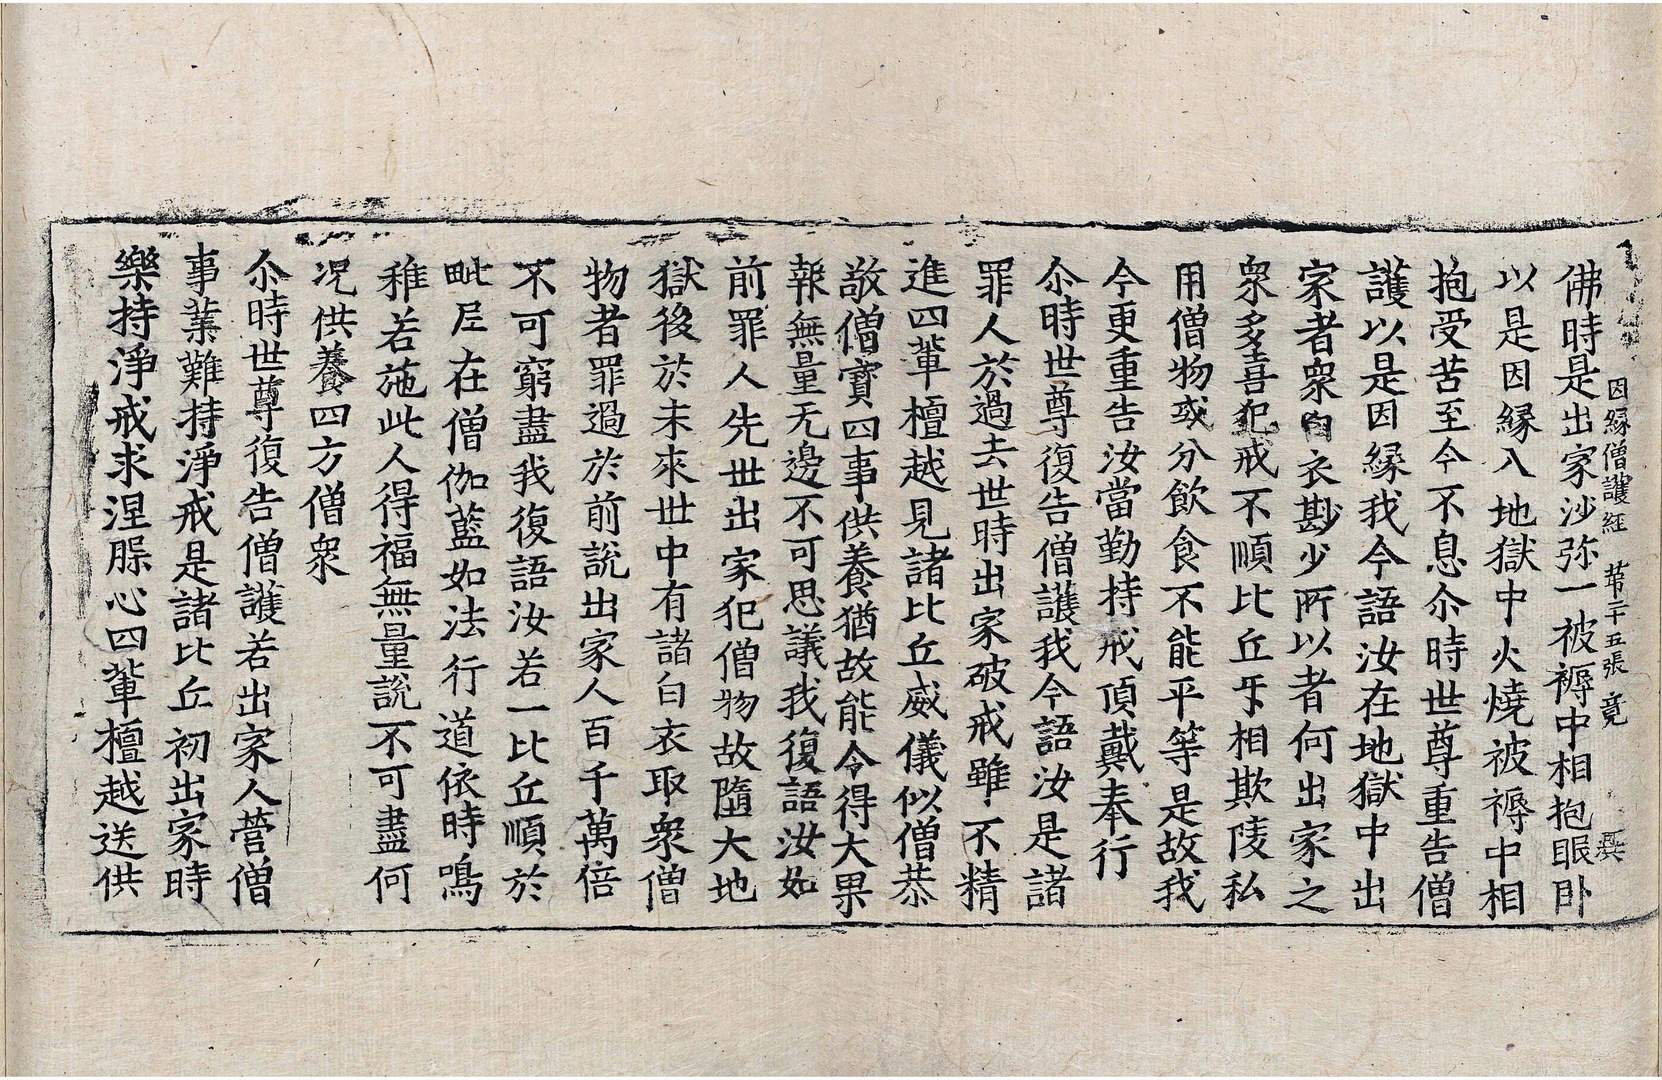 因縁僧護經 苐二十五張 竟
佛時是出家沙弥一被褥中相抱眠卧
以是因縁入地獄中火燒被褥中相
抱受苦至今不息尒時世尊重告僧
護以是因縁我今語汝在地獄中出
家者衆白衣尠少所以者何出家之
衆多喜犯戒不順比丘𭀚相欺陵私
用僧物或分飲食不能平等是故我
今更重告汝當勤持戒頂戴奉行
尒時世尊復告僧護我今語汝是諸
罪人於過去世時出家破戒雖不精
進四輩檀越見諸比丘威儀似僧恭
敬僧寶四事供養猶故能令得大果
報無量无邊不可思議我復語汝如
前罪人先世出家犯僧物故墮大地
獄後於未來世中有諸白衣取衆僧
物者罪過於前說出家人百千萬倍
不可窮盡我復語汝若一比丘順於
毗尼在僧伽藍如法行道依時鳴
稚若施此人得福無量說不可盡何
况供養四方僧衆
尒時世尊復告僧護若出家人營僧
事業難持淨戒是諸比丘初出家時
樂持淨戒求涅槃心四輩檀越送供